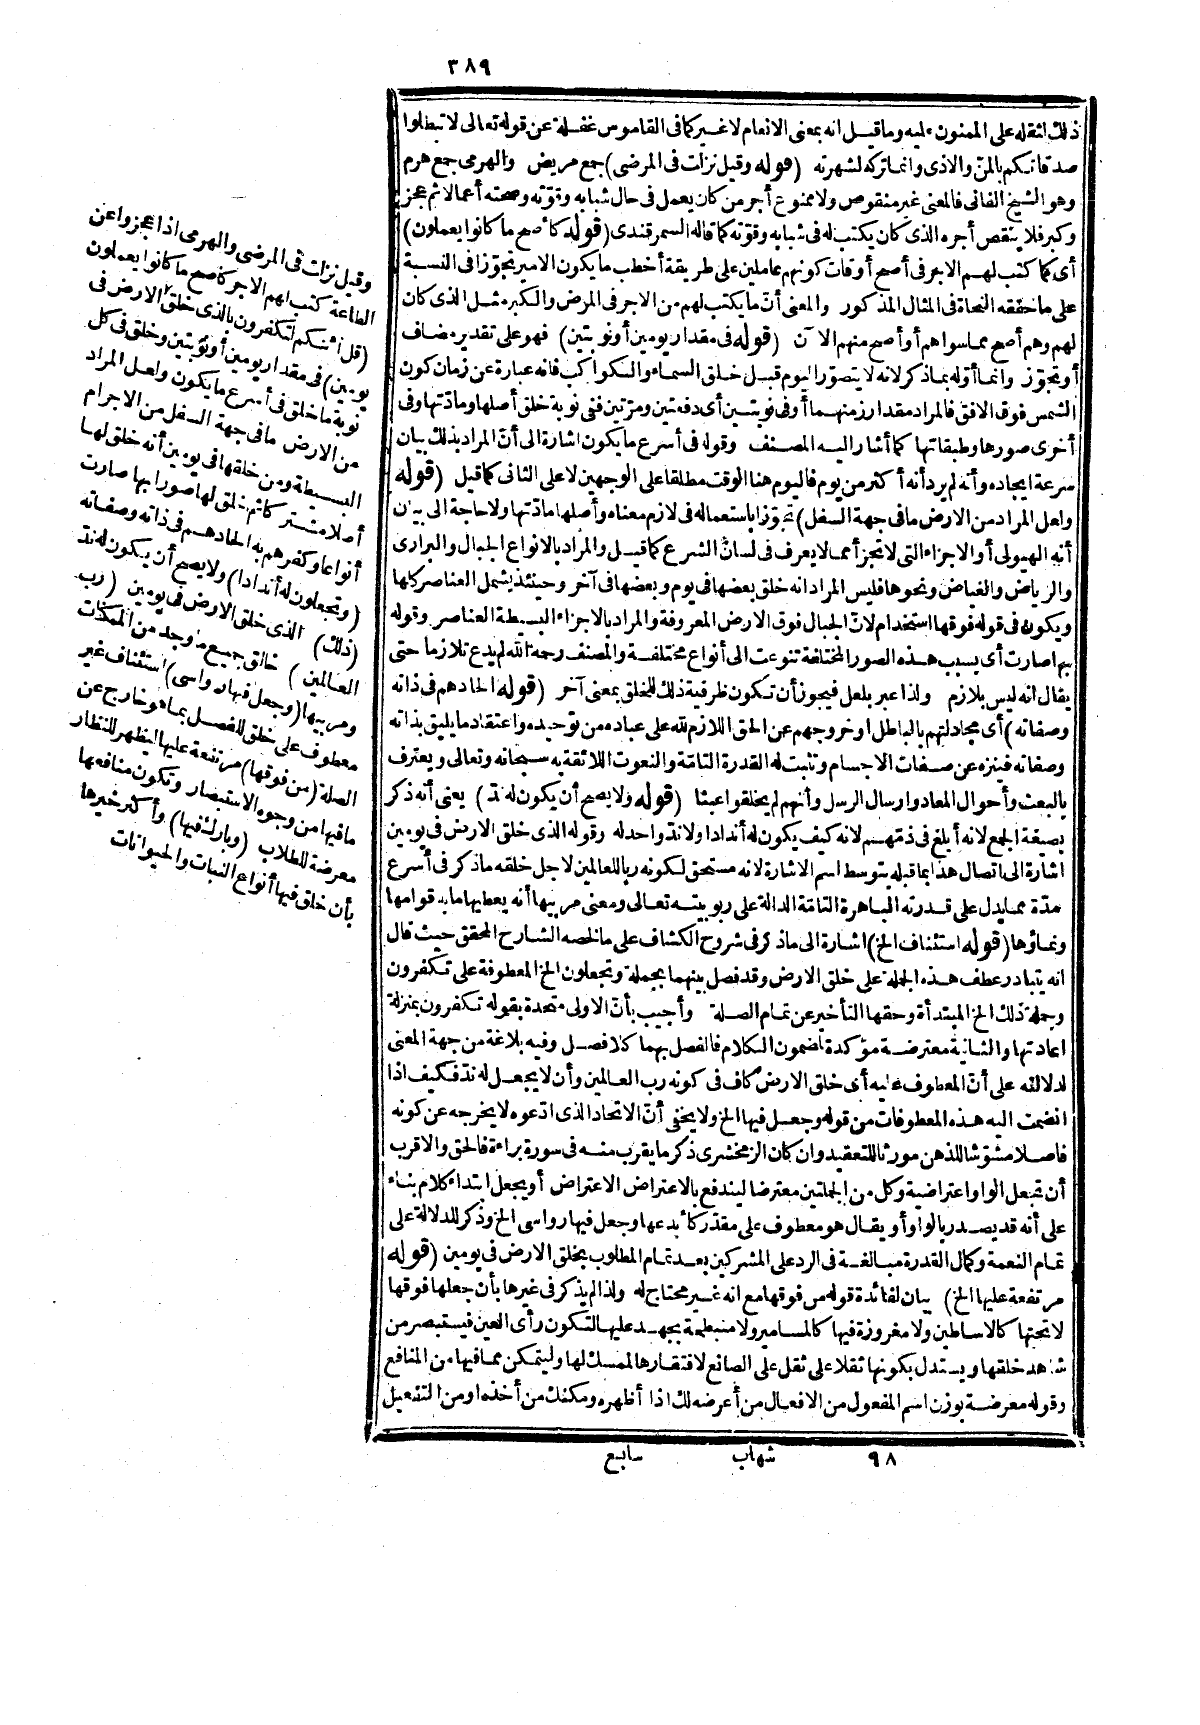 ٣٨٩
ذلك لثقله على الممنون عليه وما قيل انه بمعنى الانعام لا غير كما فى القاموس غفلة عن قوله تعالى لا تبطلوا
صدقاتكم بالمنّ والاذى وانما تركه لشهرته (قوله وقيل نزلت فى المرضى) جمع مريض والهرمى جمع هرم
وهو الشيخ الفانى فالمعنى غير منقوص ولا ممنوع أجر من كان يعمل فى حال شبابه وقوّته وصحته أعمالا ثم عجز
وكبر فلا ينقص أجره الذى كان يكتب له فى شبابه وقوّته كما قاله السمرقندى (قوله كأصح ما كانوا يعملون)
أى كما كتب لهم الاجر فى أصح أوقات كونهم عاملين على طريقة أخطب ما يكون الامير بتجوّزا فى النسبة
على ما حققه النحاة فى المثال المذكور والمعنى أنّ ما يكتب لهم من الاجر فى المرض والكبر مثل الذى كان
لهم وهم أصح مما سواهم أو أصح منهم الآن (قوله فى مقدار يومين أو نوبتين) فهو على تقدير مضاف
أو تجوّز وانما أوّله بما ذكر لانه لا يتصوّر اليوم قبل خلق السماء والكواكب فانه عبارة عن زمان كون
الشمس فوق الافق فالمراد مقدار زمنهما أو فى نوبتين أى دفعتين ومرتين ففى نوبة خلق أصلها ومادّتها وفى
أخرى صورها وطبقاتها كما أشار اليه المصنف وقوله فى أسرع ما يكون اشارة الى أنّ المراد بذلك بيان
سرعة ايجاده وأنه لم يرد أنه أكثر من يوم فاليوم هنا الوقت مطلقا على الوجهين لا على الثانى كما قيل (قوله
ولعل المراد من الارض ما فى جهة السفل) تجوّزا باستعماله فى لازم معناه وأصلها مادّتها ولا حاجة الى بيان
أنه الهيولى أو الاجزاء التى لا تتجزأ مما لا يعرف فى لسان الشرع كما قيل والمراد بالانواع الجبال والبرارى
والرياض والغياض ونحوها فليس المراد انه خلق بعضها فى يوم وبعضها فى آخر وحينئذ يشمل العناصر كلها
ويكون فى قوله فوقها استخدام لانّ الجبال فوق الارض المعروفة والمراد بالاجزاء البسيطة العناصر وقوله
بها صارت أى بسبب هذه الصور المختلفة تنوعت الى أنواع مختلفة والمصنف رحمه الله لم يدع تلازما حتى
يقال انه ليس بلازم ولذا عبر بلعل فيجوز أن تكون ظرفية ذلك للخلق بمعنى آخر (قوله الحادهم فى ذاته
وصفاته) أى مجادلتهم بالباطل او خروجهم عن الحق اللازم لله على عباده من توحيده واعتقاد ما يليق بذاته
وصفاته فينزه عن صفات الاجسام وتثبت له القدرة التامّة والنعوت اللائقة به سبحانه وتعالى ويعترف
بالبعث وأحوال المعاد وارسال الرسل وأنهم لم يخلقوا عبثا (قوله ولا يصح أن يكون له ندّ) يعنى أنه ذكر
بصيغة الجمع لانه أبلغ فى ذمّهم لانه كيف يكون له أندادا ولا ندّ واحد له وقوله الذى خلق الارض فى يومين
اشارة الى اتصال هذا بما قبله بتوسط اسم الاشارة لانه مستحق لكونه ربا للعالمين لاجل خلقه ما ذكر فى أسرع
مدّة مما يدل على قدرته الباهرة التامّة الدالة على ربوبيته تعالى ومعنى مربيها أنه يعطيها ما به قوامها
ونماؤها (قوله استئناف الخ) اشارة الى ما ذكر فى شروح الكشاف على ما لخصه الشارح المحقق حيث قال
انه يتبادر عطف هذه الجملة على خلق الارض وقد فصل بينهما بجملة وتجعلون الخ المعطوفة على تكفرون
وجملة ذلك الخ المبتدأة وحقها التأخير عن تمام الصلة وأجيب بأنّ الاولى متحدة بقوله تكفرون بمنزلة
اعادتها والثانية معترضة مؤكدة لمضمون الكلام فالفصل بهما كلا فصل وفيه بلاغة من جهة المعنى
لدلالته على أنّ المعطوف عليه أى خلق الارض كاف فى كونه رب العالمين وأن لا يجعل له ندّ فكيف اذا
انضمت اليه هذه المعطوفات من قوله وجعل فيها الخ ولا يخفى أنّ الاتحاد الذى ادّعوه لا يخرجه عن كونه
فاصلا مشوّشا للذهن مورثا للتعقيد وان كان الزمخشرى ذكر ما يقرب منه فى سورة براءة فالحق والاقرب
أن تجعل الواو اعتراضية وكل من الجملتين معترضا ليندفع بالاعتراض الاعتراض أو يجعل ابتداء كلام بناء
على أنه قد يصدر بالواو أو يقال هو معطوف على مقدّر كأبدعها وجعل فيها رواسى الخ وذكر للدلالة على
تمام النعمة وكمال القدرة مبالغة فى الرد على المشركين بعد تمام المطلوب بخلق الارض فى يومين (قوله
مرتفعة عليها الخ) بيان لفائدة قوله من فوقها مع انه غير محتاج له ولذا لم يذكر فى غيرها بأن جعلها فوقها
لا تحتها كالاساطين ولا مغروزة فيها كالمسامير ولا منبطحة بجهد عليها لتكون رأى العين فيستبصر من
شاهد خلقها ويستدل بكونها ثقلا على ثقل على الصانع لافتقارها لممسك لها وليتمكن مما فيها من المنافع
وقوله معرضة بوزن اسم المفعول من الافعال من أعرضه لك اذا أظهره ومكنك من أخذه او من التفعيل
٩٨ شهاب سابع
وقيل نزلت فى المرضى والهرمى اذا عجزوا عن
الطاعة كتب لهم الاجر كأصح ما كانوا يعملون
(قل أئنكم لتكفرون بالذى خلق الارض فى
يومين) فى مقدار يومين أو نوبتين وخلق فى كل
نوبة ما خلق فى أسرع ما يكون ولعل المراد
من الارض ما فى جهة السفل من الاجرام
البسيطة ومن خلقها فى يومين أنه خلق لها
أصلا مشتركا ثم خلق لها صورا بها صارت
أنواعا وكفرهم به الحادهم فى ذاته وصفاته
(وتجعلون له أندادا) ولا يصح أن يكون له ندّ
(ذلك) الذى خلق الارض فى يومين (رب
العالمين) خالق جميع ما وجد من الممكنات
ومربيها (وجعل فيها رواسى) استئناف غير
معطوف على خلق للفصل بما هو خارج عن
الصلة (من فوقها) مرتفعة عليها ليظهر للنظار
ما فيها من وجوه الاستبصار وتكون منافعها
معرضة للطلاب (وبارك فيها) وأكثر خيرها
بأن خلق فيها أنواع النبات والحيوانات